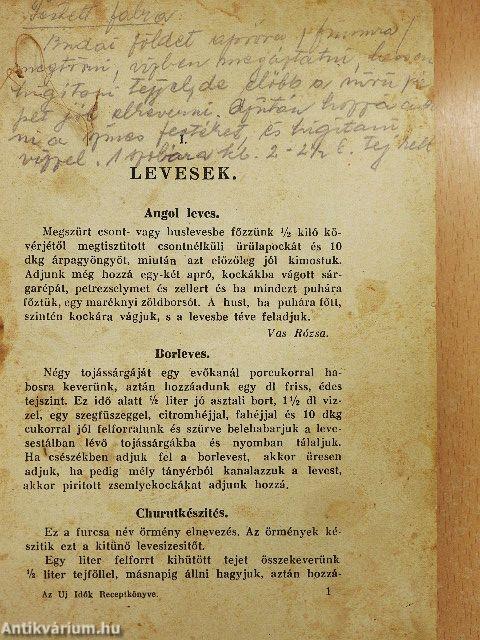 Festett falra
Budai földet apróra / finomra /
megtörni, vízben megáztatni,
hígítani tejjel, de előbb a
jól elkeverni. Azután hozzá
a festéket, és hígítani
vízzel. 1 szobára kb. 2-2½ l. tej kell
I.
LEVESEK.
Angol leves.
Megszürt csont- vagy huslevesbe főzzünk ½ kiló kö-
vérjétől megtisztitott csontnélküli ürülapockát és 10
dkg árpagyöngyöt, miután azt előzőleg jól kimostuk.
Adjunk még hozzá egy-két apró, kockákba vágott sár-
garépát, petrezselymet és zellert és ha mindezt puhára
főztük, egy maréknyi zöldborsót. A hust, ha puhára főtt,
szintén kockára vágjuk, s a levesbe téve feladjuk.
Vas Rózsa.
Borleves.
Négy tojássárgáját egy evőkanál porcukorral ha-
bosra keverünk, aztán hozzáadunk egy dl friss, édes
tejszint. Ez idő alatt ½ liter jó asztali bort, 1½ dl viz-
zel, egy szegfüszeggel, citromhéjjal, fahéjjal és 10 dkg
cukorral jól felforralunk és szürve belehabarjuk a leve-
sestálban lévő tojássárgákba és nyomban tálaljuk.
Ha csészékben adjuk fel a borlevest, akkor üresen
adjuk, ha pedig mély tányérból kanalazzuk a levest,
akkor piritott zsemlyekockákat adjunk hozzá.
Churutkészités.
Ez a furcsa név örmény elnevezés. Az örmények ké-
szitik ezt a kitünő levesizesitőt.
Egy liter felforrt kihütött tejet összekeverünk
½ liter tejföllel, másnapig állni hagyjuk, aztán hozzá-
Az Uj Idők Receptkönyve.
1
Antikvárium.hu